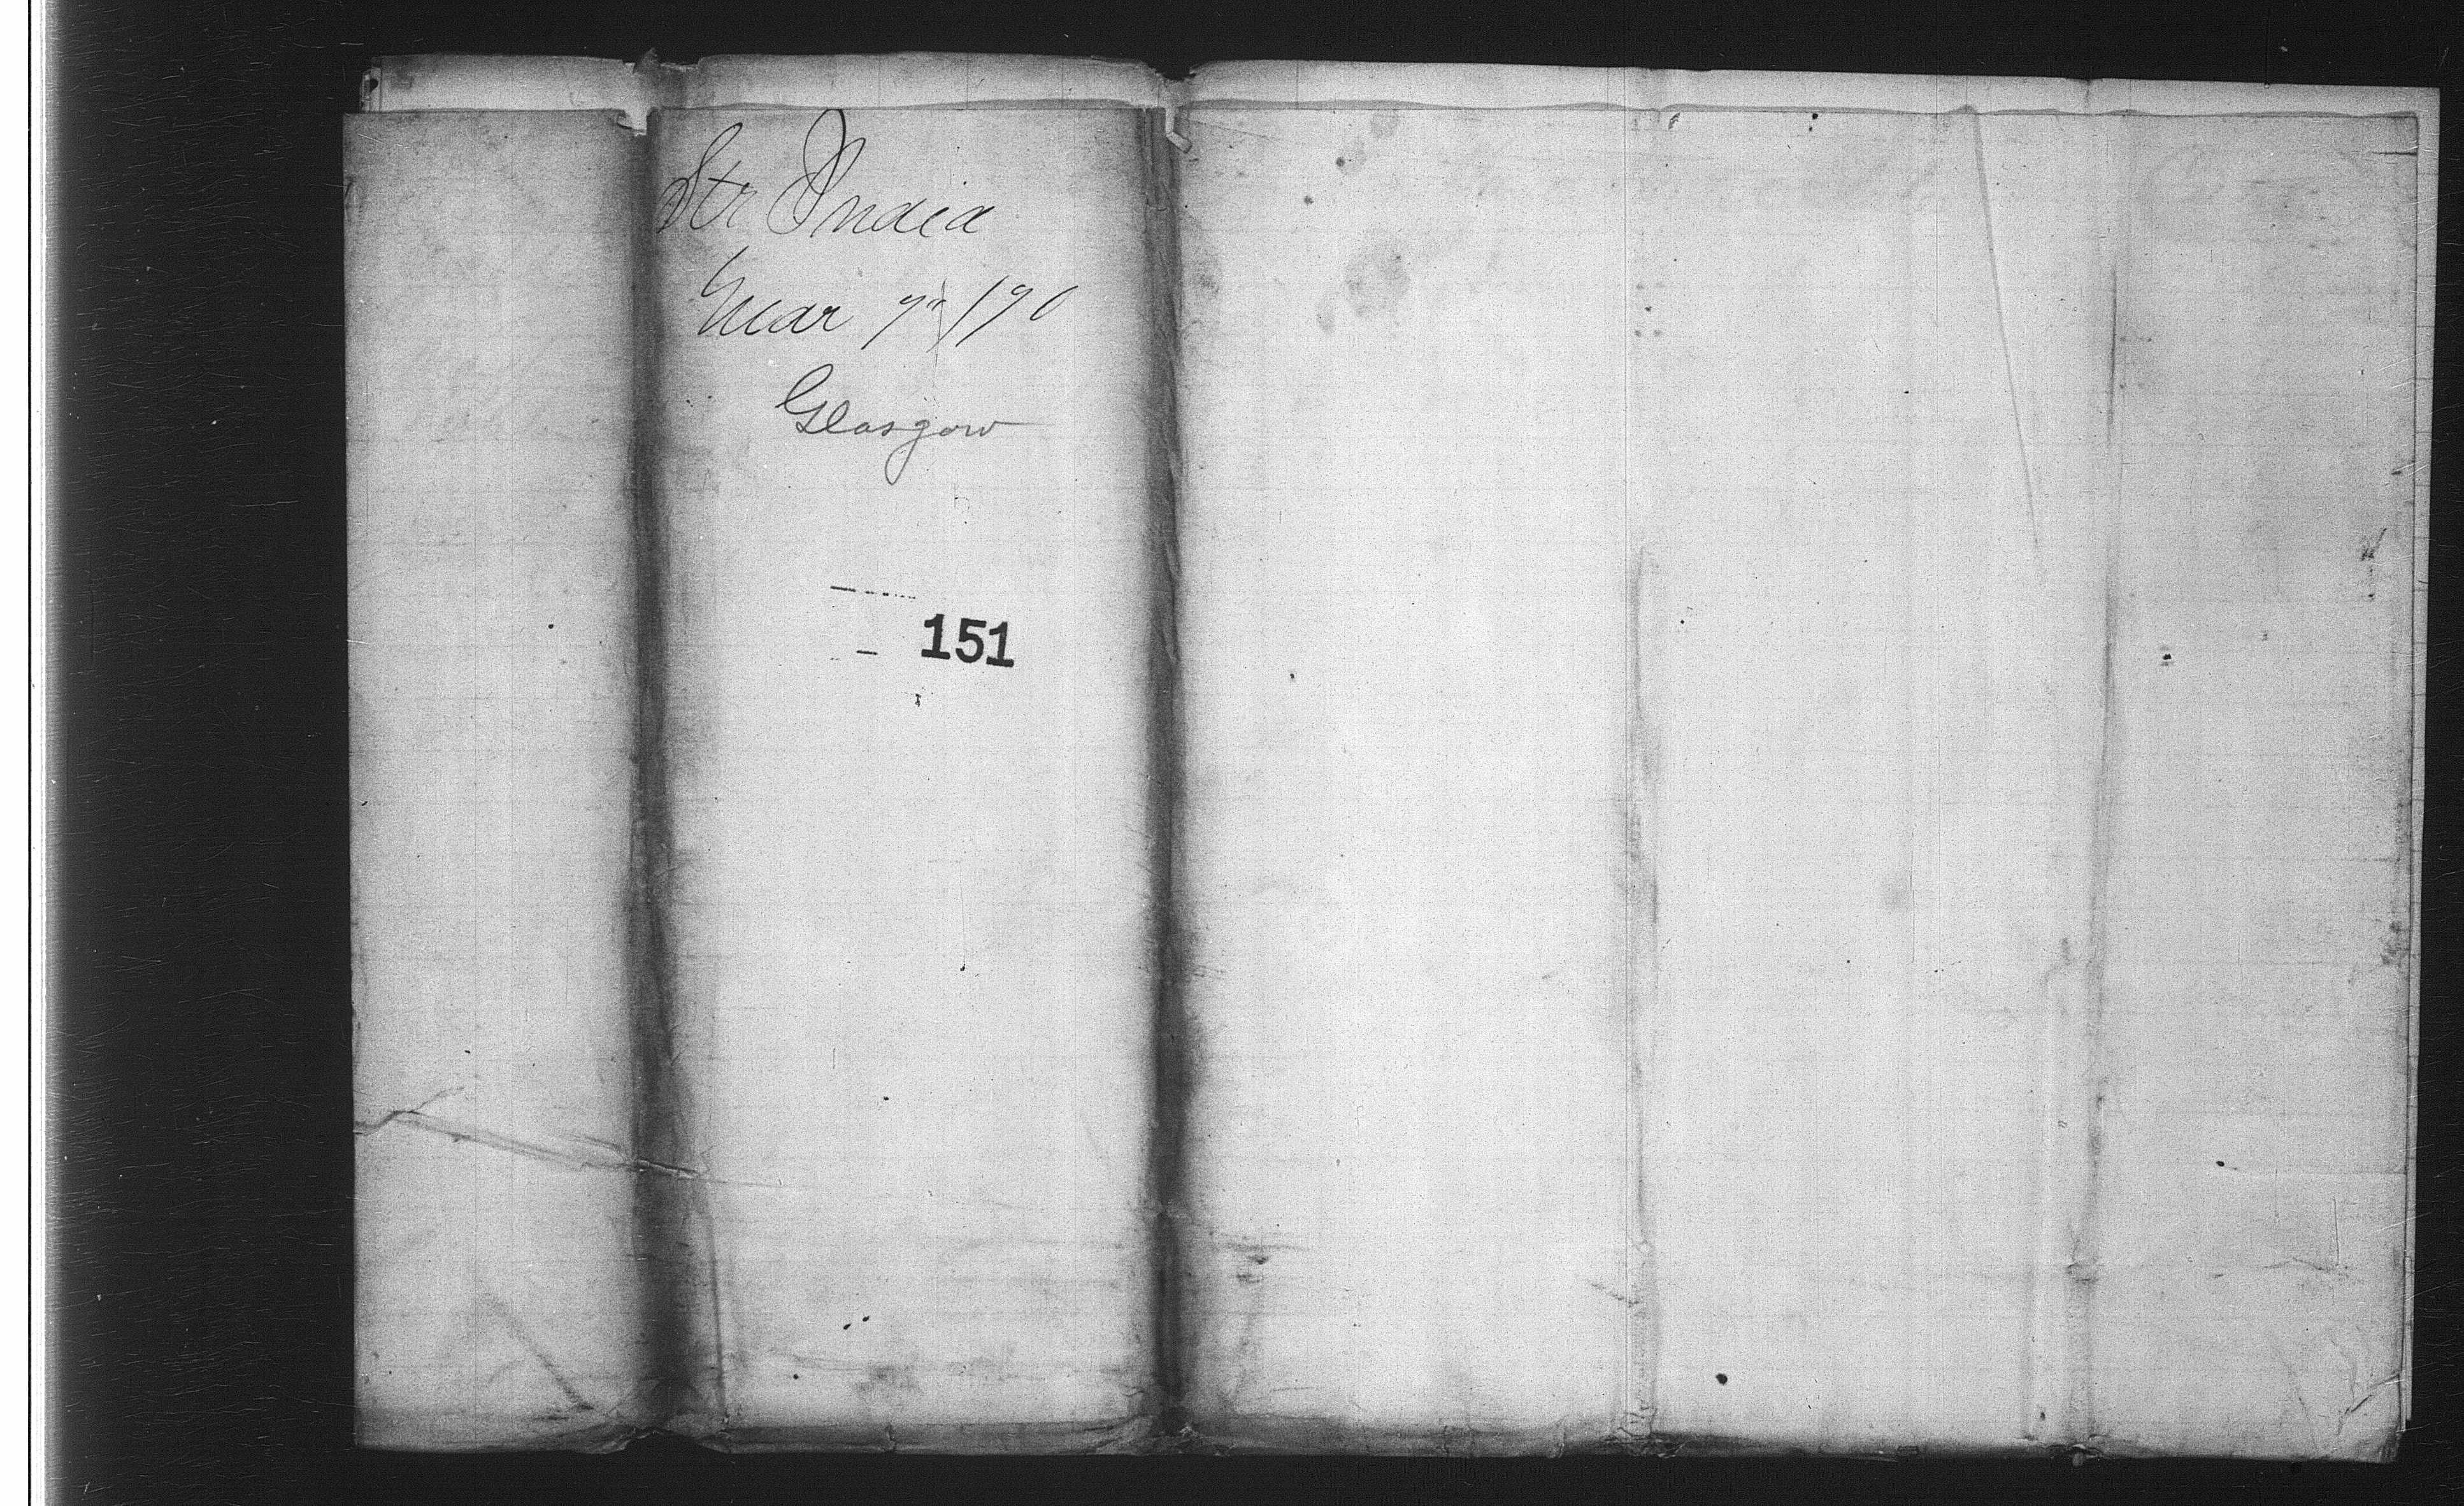 Str India
Mar 7th /70
Glasgow
151